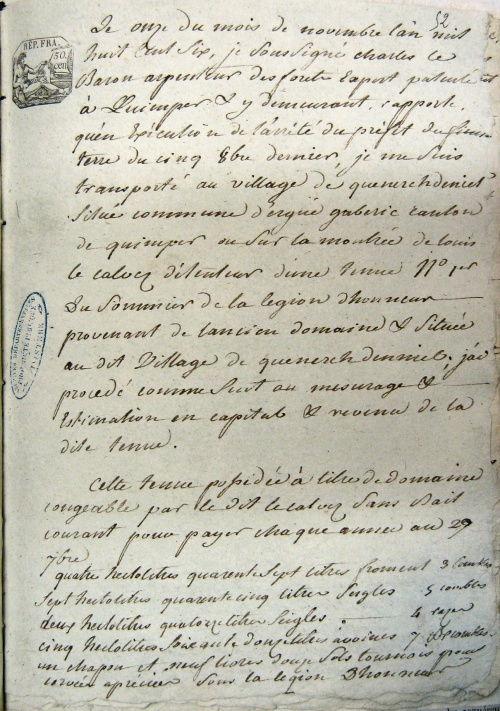 52
RÉP. FRA.
50 cen
Le onze du mois de novembre lan mil
huit Cent Six, je Soussigné charles le
Baron arpenteur des forets Expert patenté
à Quimper & y demeurant, rapporte
quén Exécution de l'arrété du préfet du finis
terre du cinq 8bre dernier, je me Suis
transporté au village de quenerchdeniel
Situé commune d'ergué gaberic canton
de quimper ou Sur la montrée de louis
le calvez détenteur dune tenue No 1er
du Sommier de la legion dhonneur
provenant de lancien domaine & Située
au dit Village de quenerchdenniel. j'ai
procédé comme Suit au mesurage &
Estimation en capital & revenu de la
dite tenue.
Cette tenue possédée à titre de domaine
congeable par le dit le calvez Sans Bail
courant pour payer chaque année au 29
7bre
quatre hectolitres quarente Sept litres froment 3 Combles
Sept hectolitres quarente cinq litres Seigles 5 combles
deux hectolitres quatorze litres Seigles 4 razes
cinq hectolitres Soixante douze litres avoines 7 combles
un chapon et neuf livres douze Sols tournois pour
corvée apréciée Sous la legion Dhonneur